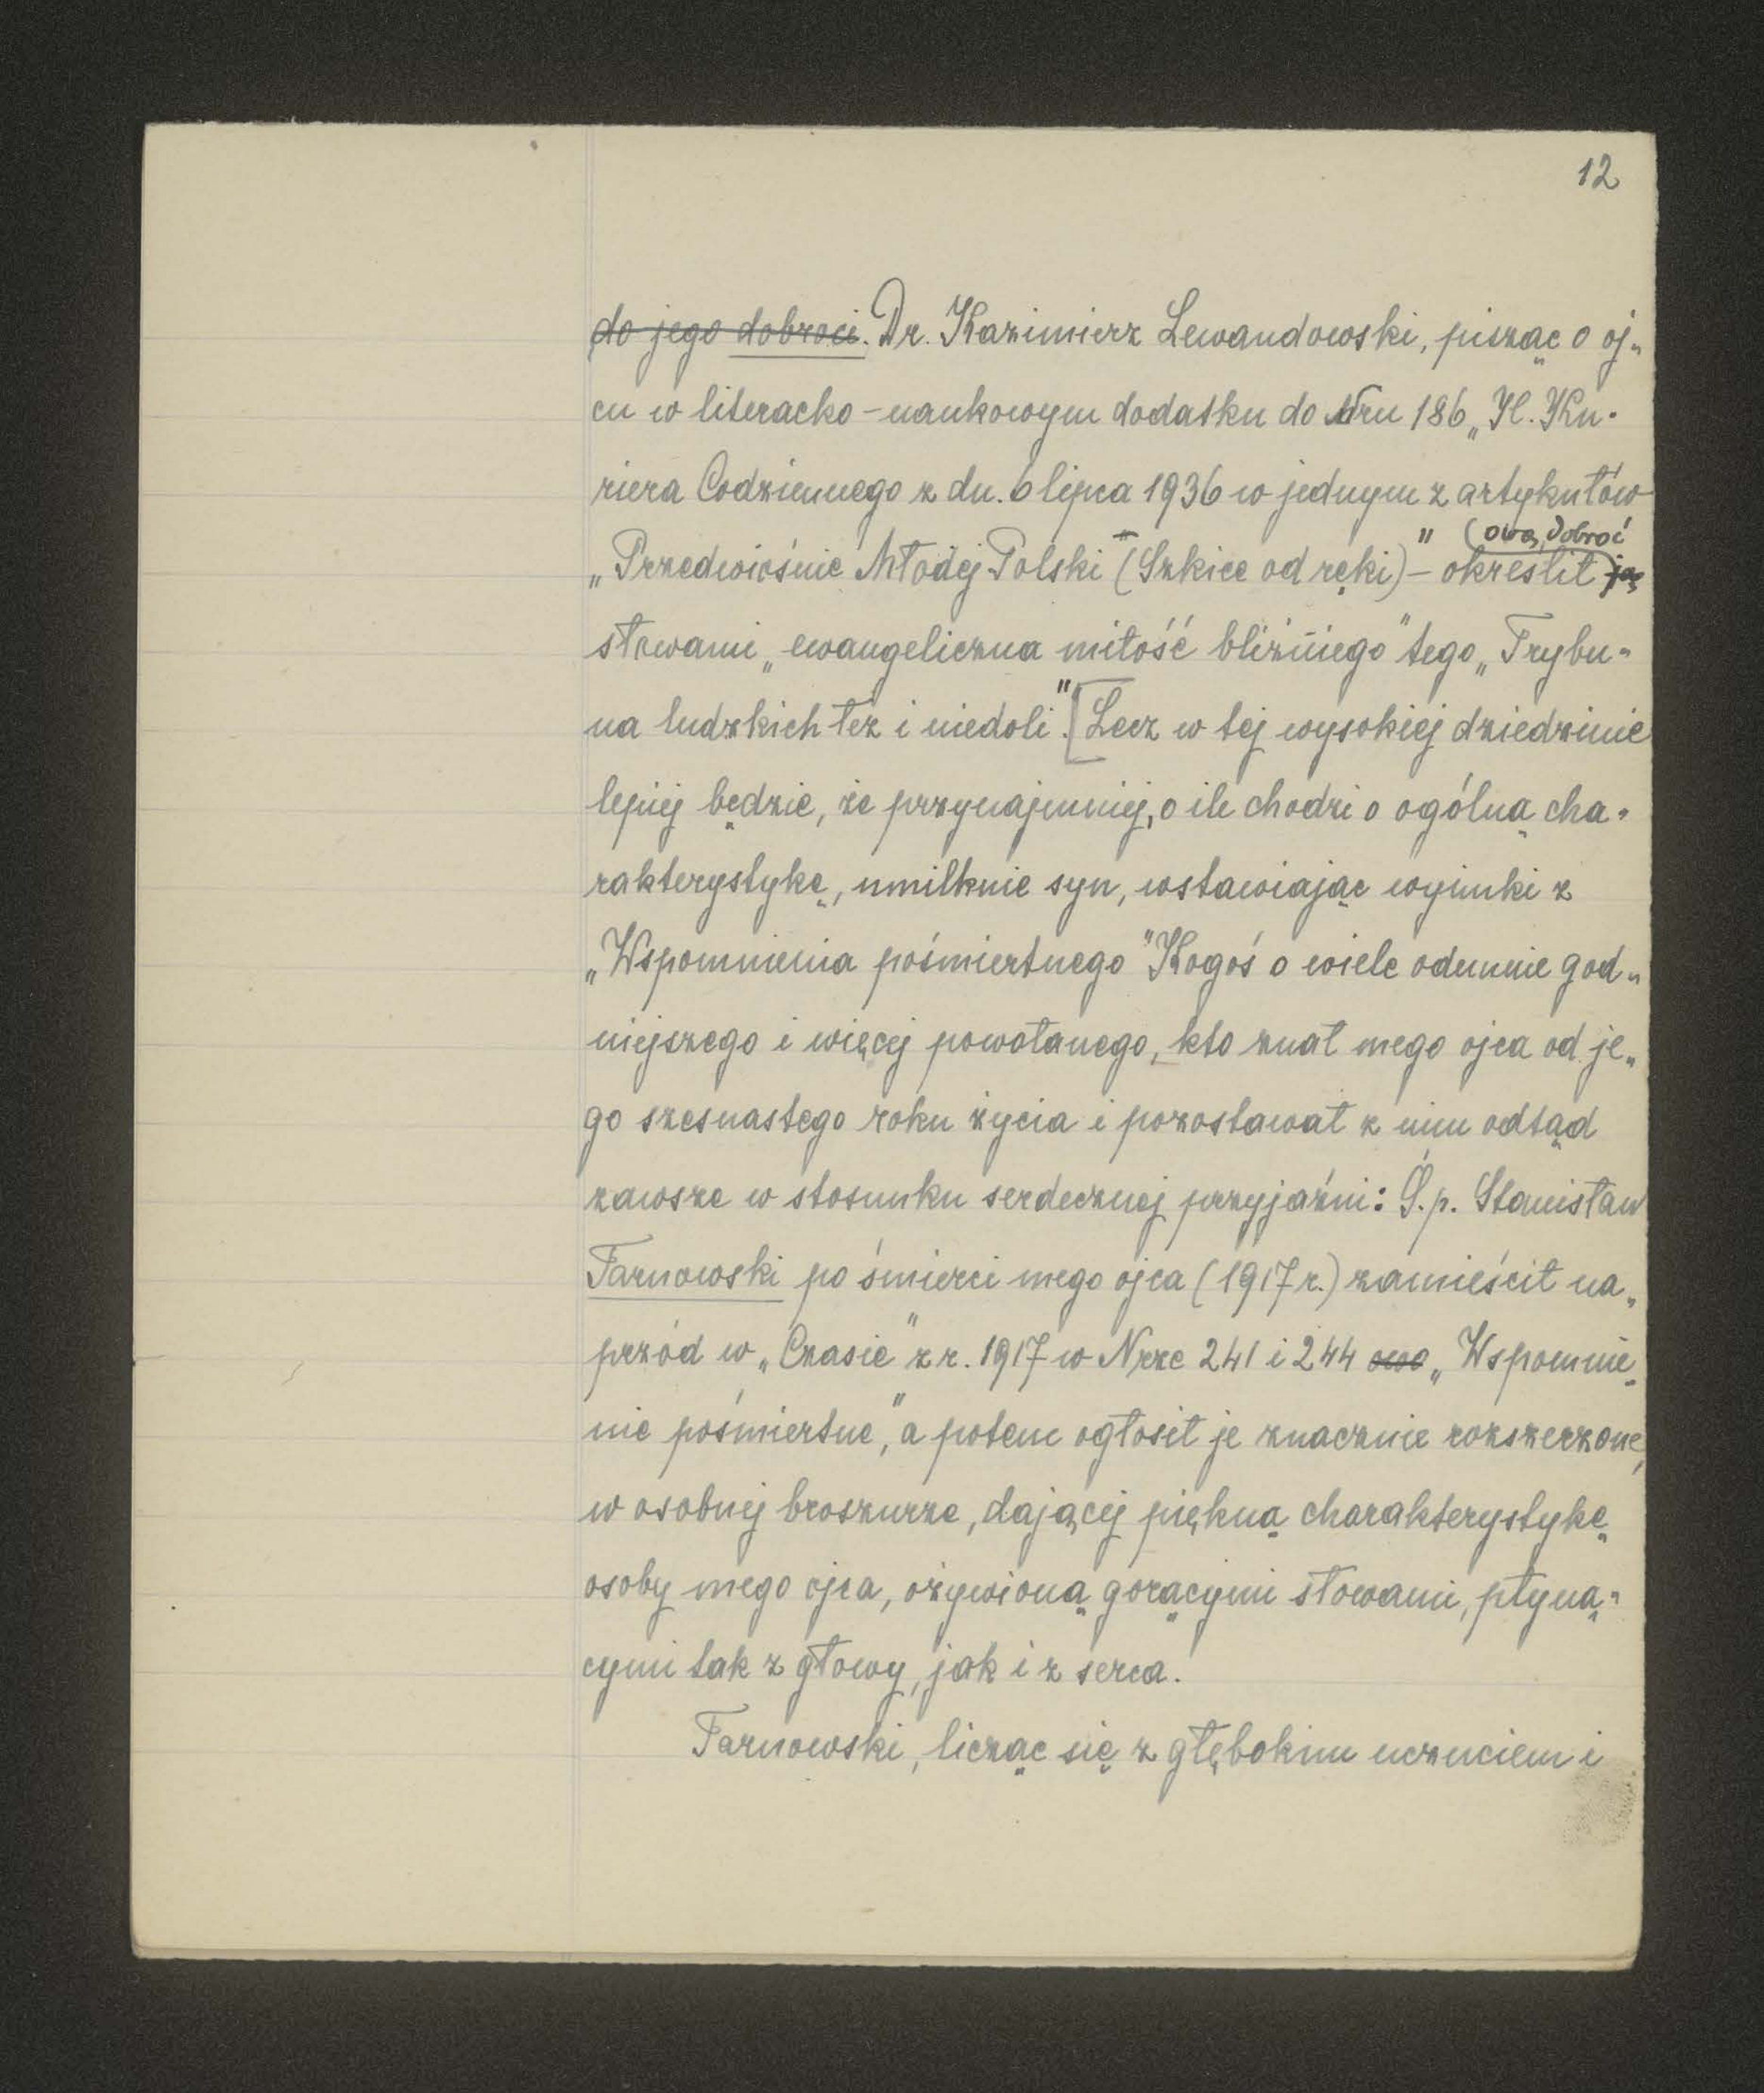 12
do jego dobroci. Dr. Kazimierz Lewandowski, pisząc o oj-
cu w literacko-naukowym dodatku do Nru 186 „Il. Ku-
riera Codziennego z dn. 6 lipca 1936 w jednym z artykułów
owa dobroć
„Przedwiośnie Młodej Polski (Szkice od ręki)" – określił ją
słowami „ewangeliczna miłość bliźniego" tego „Trybu-
na ludzkich łez i niedoli". [Lecz w tej wysokiej dziedzinie
lepiej będzie, że przynajmniej, o ile chodzi o ogólną cha-
rakterystykę, umilknie syn, wstawiając wyimki z
„Wspomnienia pośmiertnego" Kogoś o wiele odemnie god-
niejszego i więcej powołanego, kto znał mego ojca od je-
go szesnastego roku życia i pozostawał z nim odtąd
zawsze w stosunku serdecznej przyjaźni: Ś.p. Stanisław
Tarnowski po śmierci mego ojca (1917 r.) zamieścił na-
przód w „Czasie" z r. 1917 w Nrze 241 i 244 owo „Wspomnie-
nie pośmiertne", a potem ogłosił je znacznie rozszerzone,
w osobnej broszurze, dającej piękną charakterystykę
osoby mego ojca, ożywioną gorącymi słowami, płyną-
cymi tak z głowy, jak i z serca.
Tarnowski, licząc się z głębokim uczuciem i